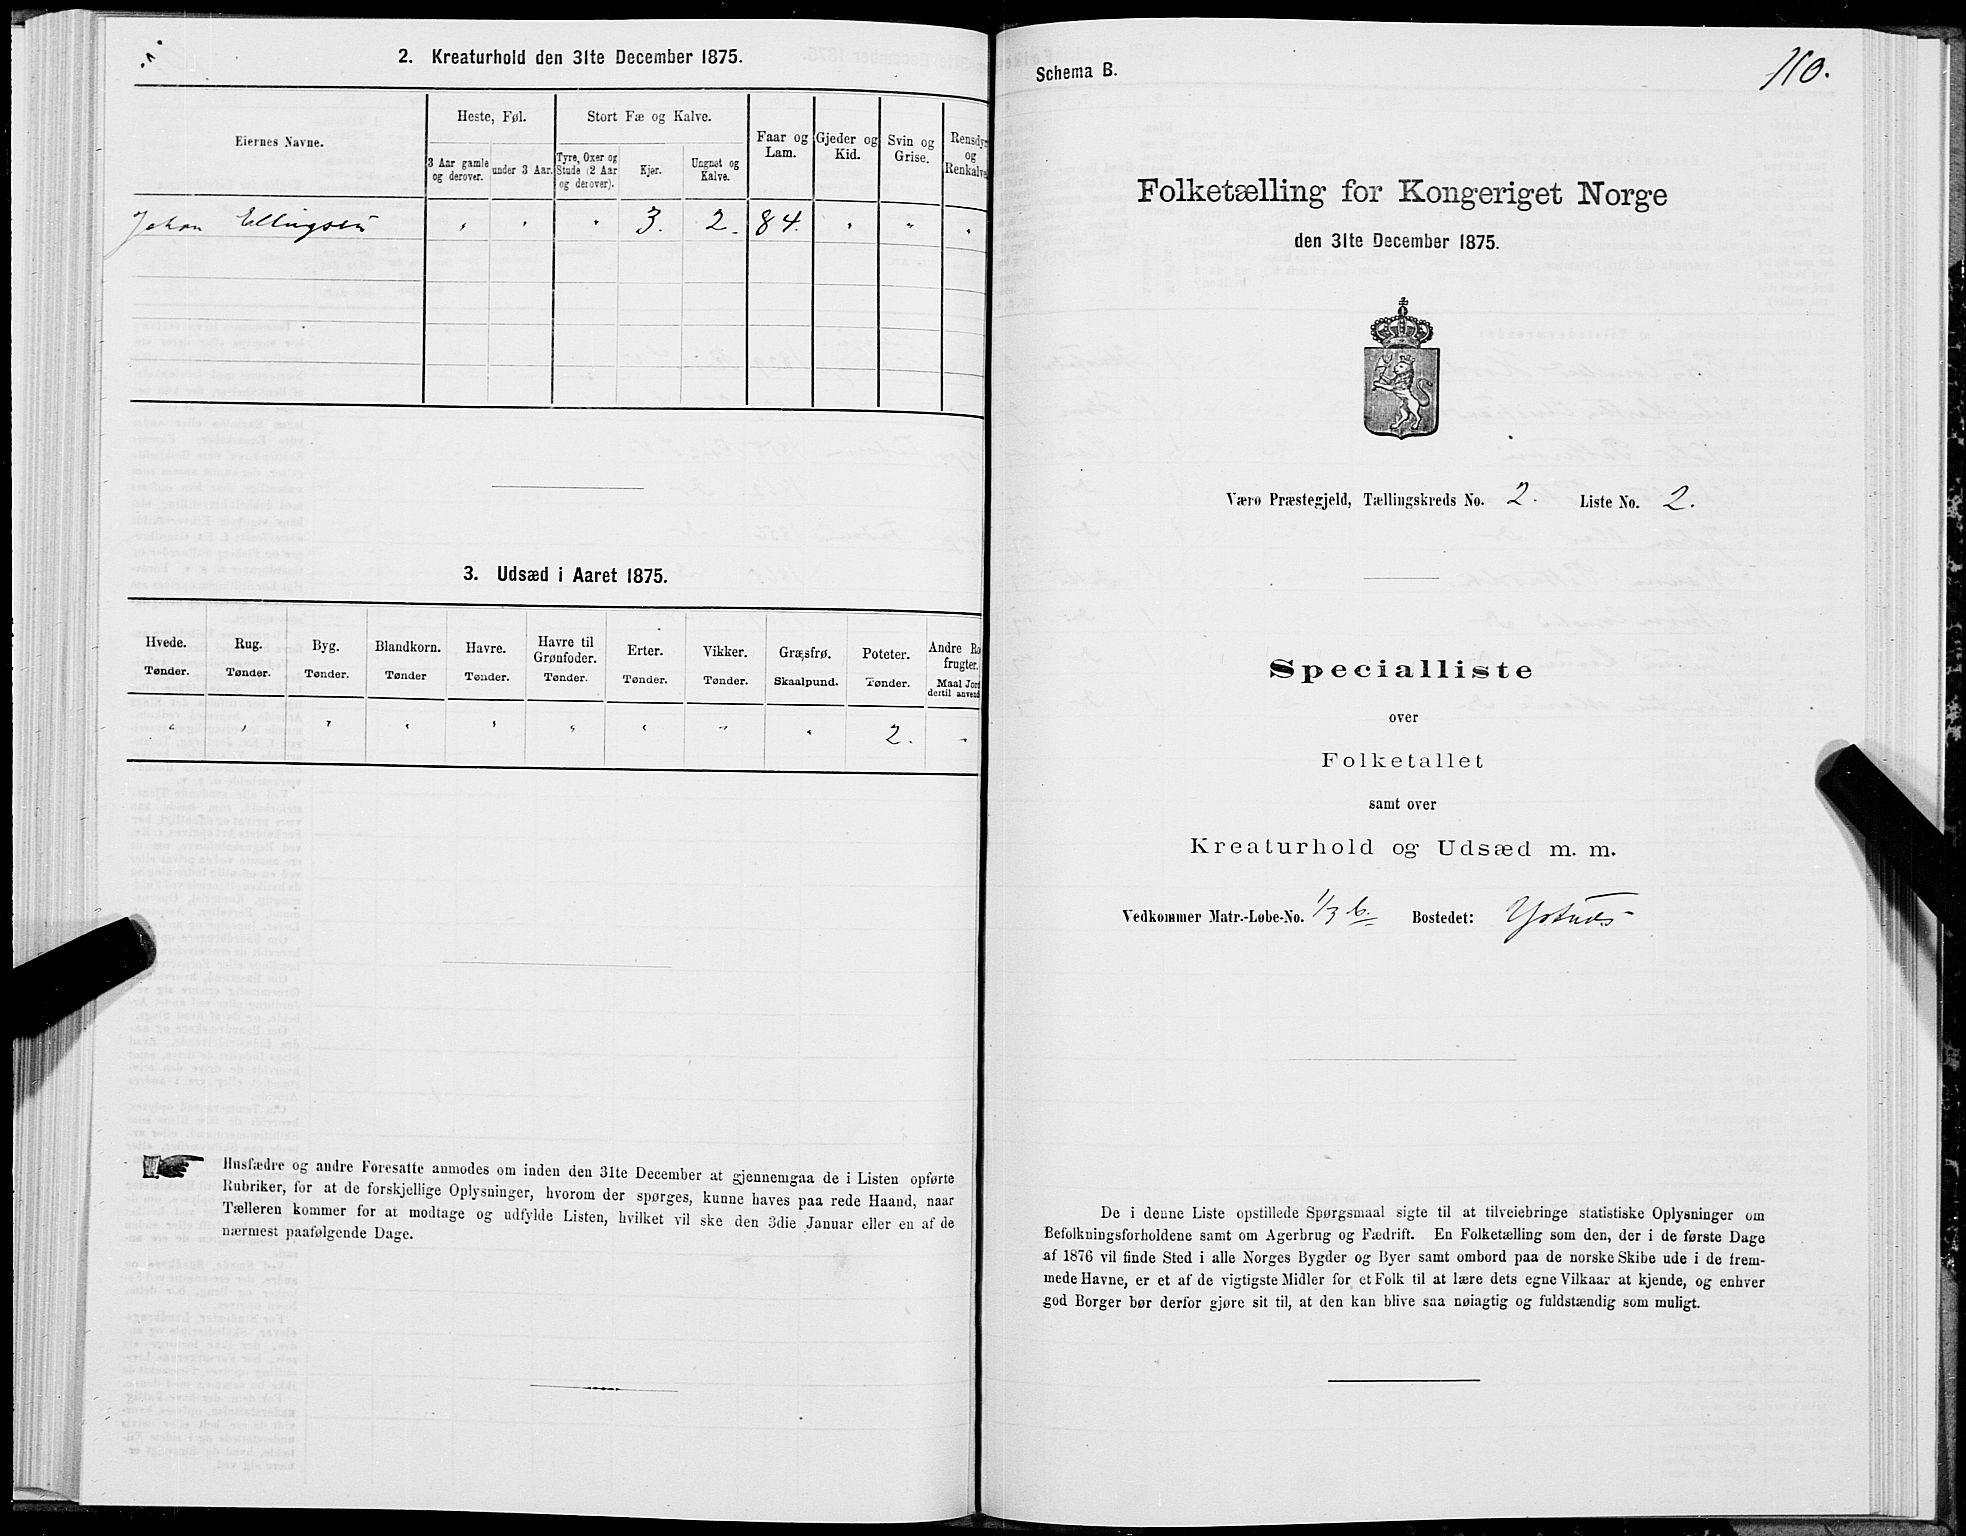 2. Kreaturhold den 31te December 1875.
Eiernes Navne.
Heste, Føl.
Stort Fæ og Kalve.
Faar og Lam.
Gjeder og Kid.
Svin og Grise.
Rensdyr og Renkalve
3 Aar gamle og derover.
under 3 Aar.
Tyre, Oxer og Stude (2 Aar og derover).
Kjør.
Ungnøt og Kalve.
Johan Ellingsen " " " 3. 2. 84. " " "
3. Udsæd i Aaret 1875.
Hvede. Rug. Byg. Blandkorn. Havre. Havre til Grønfoder. Erter. Vikker. Græsfrø. Poteter. Andre Ro frugter.
Tønder. Tønder. Tønder. Tønder Tønder. Tønder. Tønder. Tønder. Skaalpund. Tønder. Maal Jord dertil anvend
" " " " " " " " " 2. "
Husfædre og andre Foresatte anmodes om inden den 31te December at gjennemgaa de i Listen opførte
Rubriker, for at de forskjellige Oplysninger, hvorom der spørges, kunne haves paa rede Haand, naar
Tælleren kommer for at modtage og udfylde Listen, hvilket vil ske den 3die Januar eller en af de
nærmest paafølgende Dage.
110.
Schema B.
Folketælling for Kongeriget Norge
den 31te December 1875.
Værø Præstegjeld, Tællingskreds No. 2. Liste No. 2.
Specialliste
over
Folketallet
samt over
Kreaturhold og Udsæd m. m.
Vedkommer Matr.-Løbe-No. 1/3 b. Bostedet:
De i denne Liste opstillede Spørgsmaal sigte til at tilveiebringe statistiske Oplysninger om
Befolkningsforholdene samt om Agerbrug og Fædrift. En Folketælling som den, der i de første Dage
af 1876 vil finde Sted i alle Norges Bygder og Byer samt ombord paa de norske Skibe ude i de frem-
mede Havne, er et af de vigtigste Midler for et Folk til at lære dets egne Vilkaar at kjende, og enhver
god Borger bør derfor gjøre sit til, at den kan blive saa nøiagtig og fuldstændig som muligt.